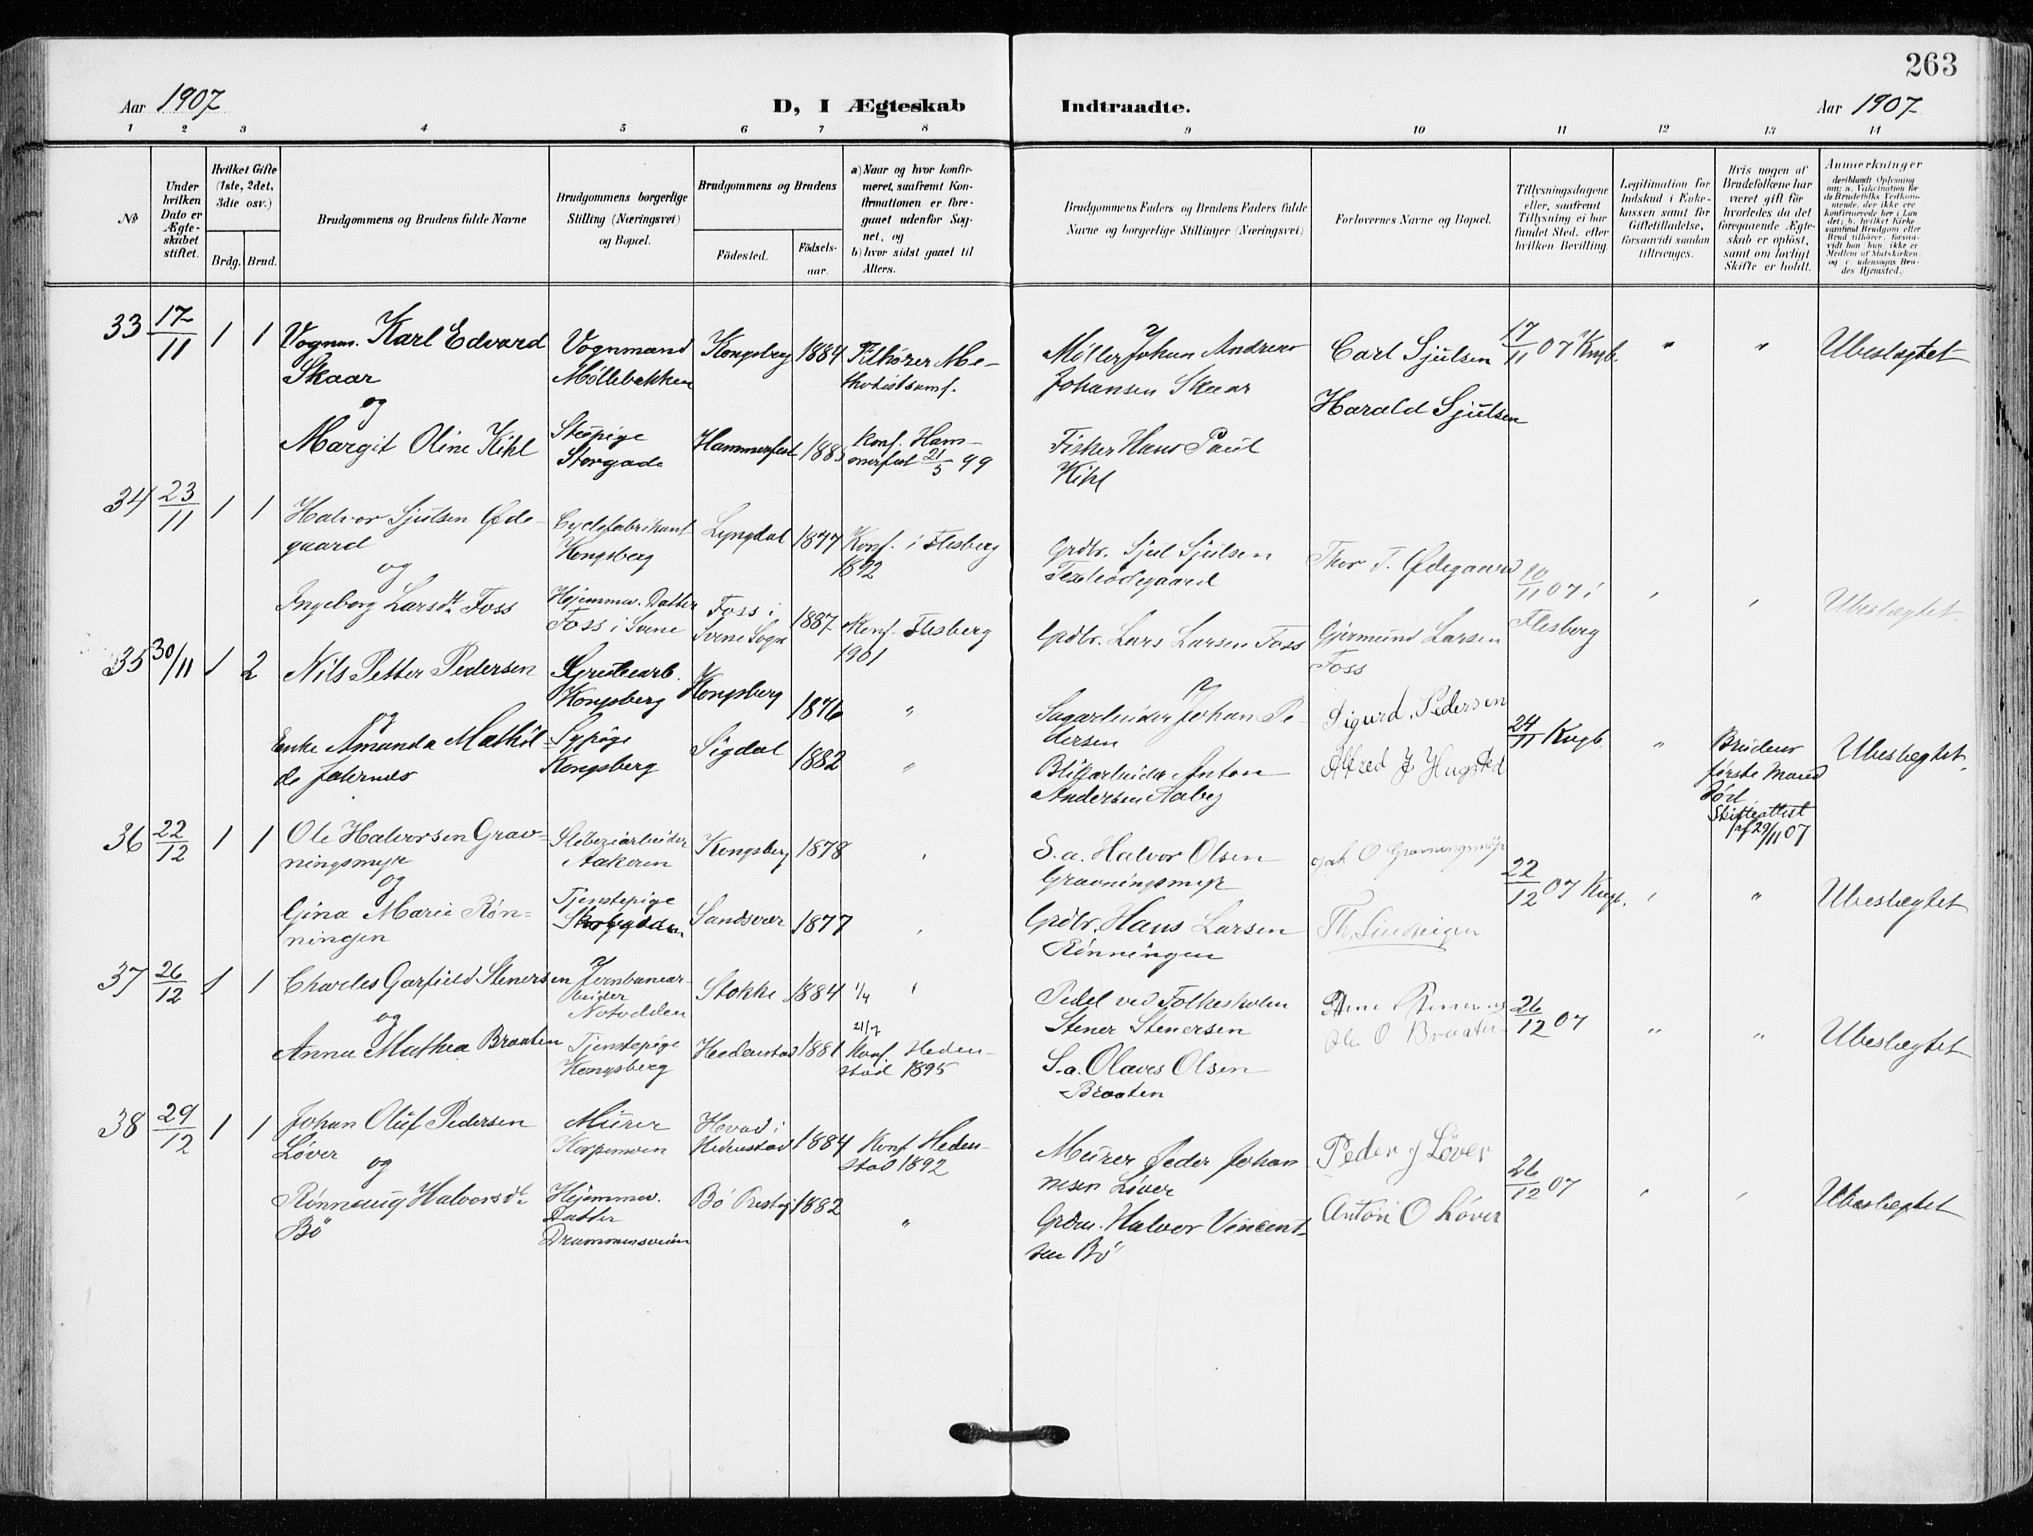 263
Aar 1907
D, I Ægteskab
Indtraadte.
Aar 1907
1 2 3 4 5 6 7 8 9 10 11 12 13 14
No
Under hvilken Dato er Ægteskabet stiftet.
Hvilket Gifte (1ste, 2det, 3die osv.)
Brdg. Brud.
Brudgommens og Brudens fulde Navne
Brudgommens borgerlige Stilling (Næringsvei) og Bopæl.
Brudgommens og Brudens
Födested.
Födsels-aar.
a) Naar og hvor konfirmeret, saafremt Konfirmationen er foregaaet udenfor Sognet, og
b) hvor sidst gaaet til Alters.
Brudgommens Faders og Brudens Faders fulde Navne og borgerlige Stillinger (Næringsvei)
Forlovernes Navne og Bopæl.
Tillysningsdagene eller, saafremt Tillysning ei har fundet Sted, efter hvilken Bevilling.
Legitimation for Indskud i Enkekassen samt for Giftetilladelse, forsaavidt saadan tiltrænges.
Hvis nogen af Brudefolkene har været gift før hvorledes da det foregaaende Ægteskab er opløst, samt om lovligt Skifte er holdt.
Anmerkninger
33 17/11 1 1 Vognm. Karl Edvard
Skaar
og
Margit Oline Kihl
Vognmand
Møllebakken
Kongsberg 1884
Tilhører Me-
thodistsamf.
Storgade
Hammerfest 1885
Konf. Ham-
merfest 21/5 99
Møller Johan Andreas
Johansen Skaar
Fisker Hans Paul
Kihl
Carl Sjulsen
Harald Sjulsen
17/11 07 Kngb.
" "
Ubeslægtet
34 23/11 1 1 Halvor Sjulsen Øde-
gaard
og
Ingeborg Larsdt. Foss
Cyclefabrikant
Kongsberg
Lyngdal 1877
Konf. i Flesberg
1892
Hjemmev. Datter
Foss i Svene
Foss i
Svene Sogn
1887
Konf. Flesberg
1901
Grdbr. Sjul Sjulsen
Grdbr. Lars Larsen Foss
Thor T. Ødegaard
Gjermund Larsen
Foss
10/11 07 i
Flesberg
Ubeslægtet
35 30/11 1 2 Nils Petter Pedersen
og
Enke Amanda Mathil-
de
Grubearb.
Kongsberg
Kongsberg 1876 "
Sypige
Kongsberg
Sigdal 1882 "
Sagarbeider Johan Pe-
dersen
Anton
Andersen Aalby
Sigurd Pedersen
Alfred J Hugsted
24/11 Kngb.
"
Brudens
første Mand
død
Skifteattest
af 29/11 07
Ubeslægtet
36 22/12 1 1 Ole Halvorsen Grav-
ningsmyr
og
Gina Marie Røn-
ningen
Kongsberg 1878
Tjenestepige
Sandsvær 1877
S.a. Halvor Olsen
Gravningsmyr
Grdbr. Hans Larsen
Rønningen
O Gravningsmyr
22/12 07 Kngb.
"
Ubeslægtet
37 26/12 1 1 Charles Garfield Stenersen
og
Anna Mathea Braaten
Jernbanear-
beider
Notodden
Stokke 1884
Tjenstepige
Kongsberg
Hedenstad 1881
Konf. Heden-
stad 1895
Pedel ved Folkeskolen
Stener Stenersen
S.a. Olaves Olsen
Braaten
Ole O Braaten
26/12 07
" "
Ubeslægtet
38 29/12 1 1 Johan Oluf Pedersen
Løver
og
Rønnaug Halvorsdt.
Bö
Murer
Hedenstad 1884
Konf Heden-
stad 1892
Hjemmev.
Datter
Drammensveien
Bö Prestgj 1882
"
Murer Peder Johan
nesen Løver
Grdm. Halvor Vincent-
sen Bö
Peder J Løver
Anton O Løver
26/12 07
Ubeslægtet